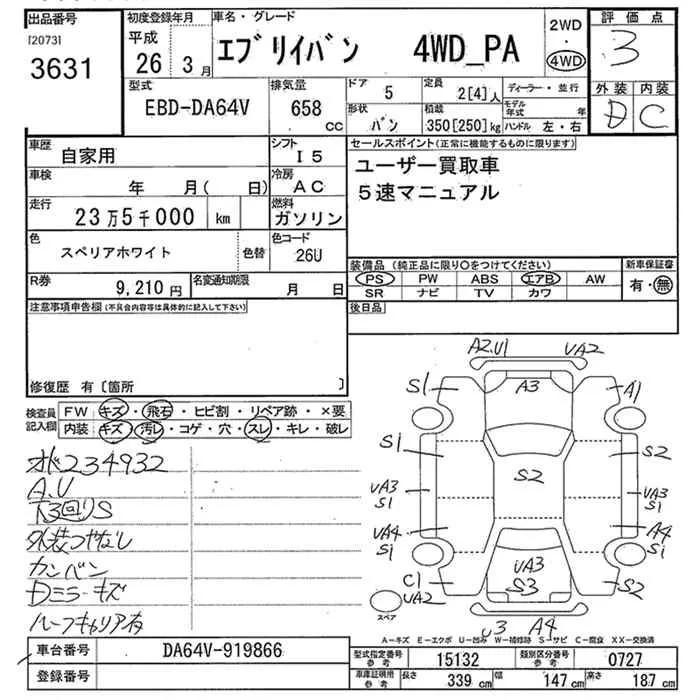 出品番号 初度登録年月 車名・グレード 2WD 評価点
[2073] 平成 エブリイバン 4WD_PA ・ 3
3631 26年 3月 4WD 外装 内装
型式 排気量 ドア 定員 ディーラー・並行 D C
EBD-DA64V 658 CC 5 2[4]人 モデル年式 年
形状 積載 ハンドル 左・右
バン 350[250]kg
車歴 自家用 シフト I5 セールスポイント(正常に機能するものに限ります)
車検 年 月( 日) 冷房 AC ユーザー買取車
走行 23万5千000 km 燃料 ガソリン 5速マニュアル
色 スペリアホワイト 色替 色コード 26U
装備品 (純正品に限り〇をつけてください) 新車保証書
R券 9,210円 名変通知期限 月 日 PS PW ABS エアB AW 有・無
SR ナビ TV カワ
注意事項申告欄(不具合内容等は具体的に記入して下さい) 後日品
修復歴 有〔箇所 〕
検査員記入欄 FW キズ・飛石・ヒビ割・リペア跡・×要
内装 キズ・汚レ・コゲ・穴・スレ・キレ・破レ
オド234932
A.U
下3回りS
外装つやなし
カンバン
Dミラーキズ
ルーフキャリア有
A2.U1 UA2
S1 A3 A1
S1 S2 S2
UA3 S1 UA3 S1
UA4 S1 A4 S1
C1 UA2 UA3 S3 S2
スペア U3 A4
A-キズ E-エクボ U-凹み W-補修跡 S-サビ C-腐食 XX-交換済
車台番号 DA64V-919866 型式指定番号 参考 15132 類別区分番号 参考 0727
登録番号 車庫証明用 参考 長さ 339 cm 幅 147 cm 高さ 187 cm